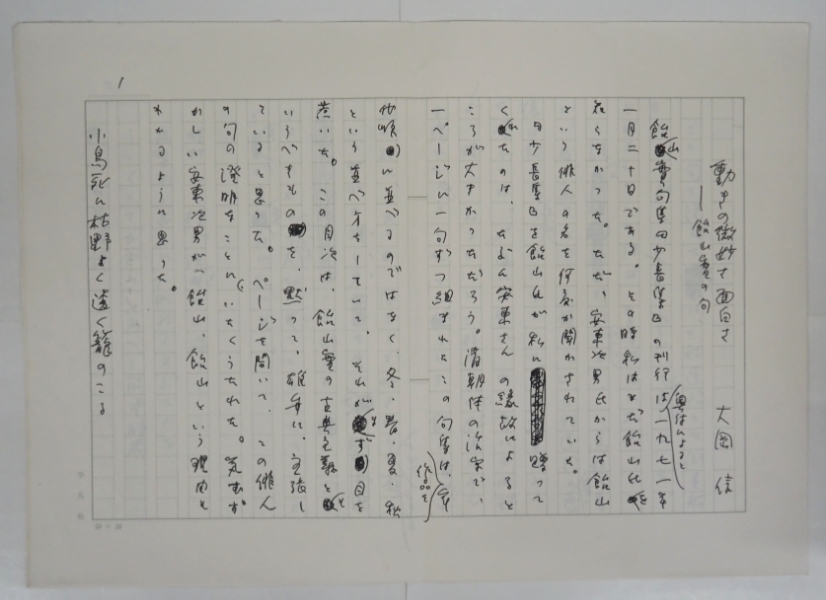 1
動きの微妙で面白さ　大岡信
―飴山實の句
飴山實句集『少長集』の刊行は奥付によると一九七一年
一月二十日である。その時私はまだ飴山氏を
知らなかった。ただ、安東次男氏からは飴山
という俳人の名を何度か聞かされていた。
『少長集』を飴山氏が私に贈って
くれたのは、たぶん安東さんの縁故によると
ころが大きかっただろう。清朝体の活字で、
一ページに一句ずつ組まれたこの句集は、作品を年
代順に並べるのではなく、冬・春・夏・秋
という並べ方をしていて、それがまず目を
惹いた。この目次は、飴山實の古典主義と
いうべきものを、黙って、雄弁に、主張し
ていると思った。ページを開いて、この俳人
の句の澄明なことに、いたくうたれた。気むず
かしい安東次男が、飴山、飴山という理由も
わかるように思った。
小鳥死に枯野よく透く籠のこる